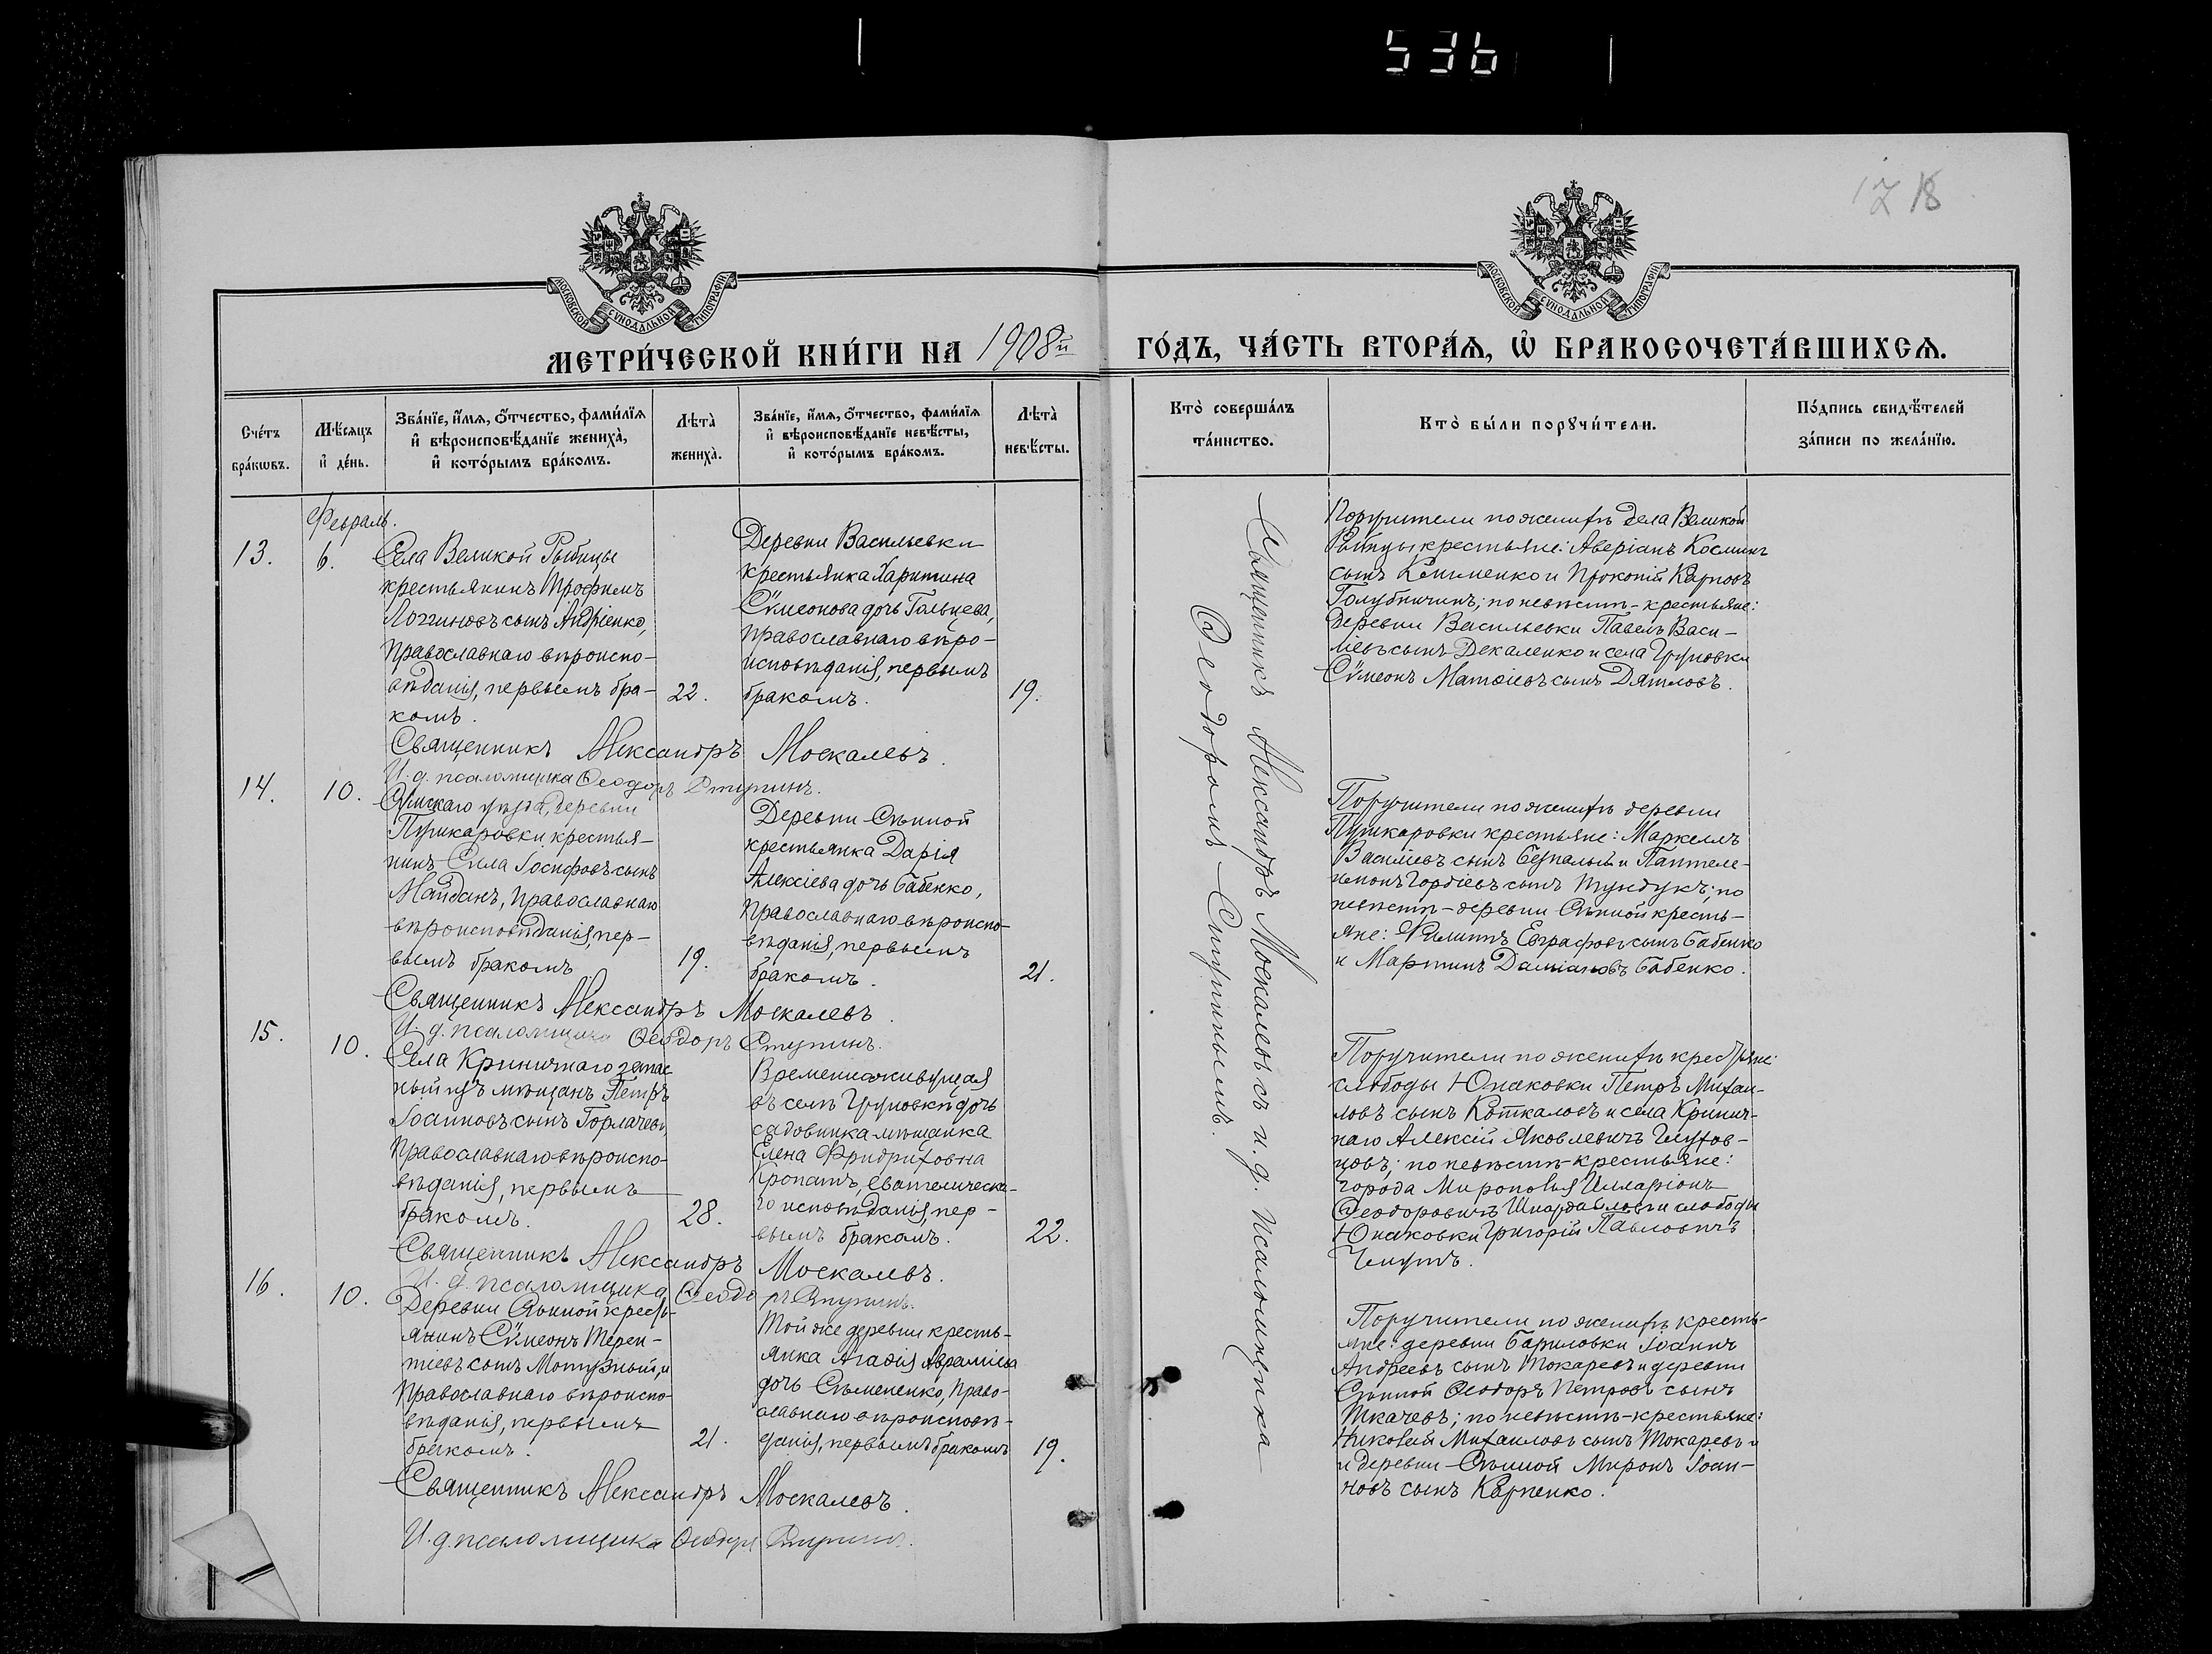 536
17 18
МОСКОВСКОЙ СѴНОДАЛЬНОЙ ТИПОГРАФІИ
МОСКОВСКОЙ СѴНОДАЛЬНОЙ ТИПОГРАФІИ
МЕТРИ́ЧЕСКОЙ КНИ́ГИ НА 1908й ГО́ДЪ, ЧА́СТЬ ВТОРА́Я, Ѡ БРАКОСОЧЕТА́ВШИХСЯ.
Сче́тъ
бра́кѡвъ.
Мѣ́сяцъ
и де́нь.
Зва́нїе, и́мя, о́тчество, фами́лїя
и вѣроисповѣ́данїе жениха̀,
и кото́рымъ бра́комъ.
Лѣта̀
жениха̀.
Зва́нїе, и́мя, о́тчество, фами́лїя
и вѣроисповѣ́данїе невѣ́сты,
и кото́рымъ бра́комъ.
Лѣта̀
невѣ́сты.
Кто̀ соверша́лъ
та́инство.
Кто̀ бы́ли порꙋчи́тели.
По́дпись свидѣ́телей
за́писи по жела́нїю.
Февраль.
13.
6.
Села Великой Рыбицы
крестьянинъ Трофимъ
Логгиновъ сынъ Андріенко,
православнаго вѣроиспо-
вѣданія, первымъ бра-
комъ.
22.
Деревни Васильевки
крестьянка Харитина
Сѵмеонова дочь Гольцева,
православнаго вѣро-
исповѣданія, первымъ
бракомъ.
19.
Поручители по женихѣ села Великой
Рыбицы крестьяне: Аверіанъ Косминъ
сынъ Клименко и Прокопій Карповъ
Голубничинъ; по невѣстѣ - крестьяне:
деревни Васильевки Павелъ Васи-
ліевъ сынъ Декаленко и села Груновки
Сѵмеонъ Матѳіевъ сынъ Дятловъ.
Священникъ Александръ Москалевъ.
И. д. псаломщика Ѳеодоръ Ступинъ.
14.
10.
Сумскаго уѣзда, деревни
Пушкаровки крестья-
нинъ Сила Іосифовъ сынъ
Майданъ, православнаго
вѣроисповѣданія, пер-
вымъ бракомъ.
19.
Деревни Снѣжной
крестьянка Дарія
Алексіева дочь Бабенко,
православнаго вѣроиспо-
вѣданія, первымъ
бракомъ.
21.
Поручители по женихѣ деревни
Пушкаровки крестьяне: Маркеллъ
Василіевъ сынъ Безпалый и Пантеле-
имонъ Гордіевъ сынъ Тундукъ; по
невѣстѣ - деревни крестья-
яне: Филиппъ Евграфовъ сынъ Бабенко
и Мартинъ Даміановъ Бабенко.
Священникъ Александръ Москалевъ.
И. д. псаломщика Ѳеодоръ Ступинъ.
15.
10.
Села Криничнаго запас-
ный изъ мѣщанъ Петръ
Іоанновъ сынъ Горлачевъ,
православнаго вѣроиспо-
вѣданія, первымъ
бракомъ.
28.
Временно живущая
въ селѣ Груновкѣ дочь
садовника мѣщанка
Елена Фридриховна
Кропатъ, Евангелическа-
го исповѣданія, пер-
вымъ бракомъ.
22.
Поручители по женихѣ крестьяне:
слободы Юнаковки Петръ Михаи-
ловъ сынъ Коткаловъ и села Кринич-
наго Алексій Яковлевичъ
по невѣстѣ - крестьяне:
города Мирополья Илларіонъ
Ѳеодоровичъ и слободы
Юнаковки Григорій Павловичъ
Священникъ Александръ Москалевъ.
И. д. псаломщика Ѳеодоръ Ступинъ.
16.
10.
Деревни кресть-
янинъ Сѵмеонъ Терен-
тіевъ сынъ Мотузный,
православнаго вѣроиспо-
вѣданія, первымъ
бракомъ.
21.
Той же деревни кресть-
янка Агаѳія Авраміева
дочь право-
славнаго вѣроисповѣ-
данія, первымъ бракомъ
19.
Поручители по женихѣ кресть-
яне: деревни Бариловки Іоаннъ
Андреевъ сынъ Токаревъ и деревни
Ѳеодоръ Петровъ сынъ
Ткачевъ; по невѣстѣ - крестьяне:
Михаиловъ сынъ Токаревъ и
и деревни Миронъ Іоан-
новъ сынъ Карпенко.
Священникъ Александръ Москалевъ.
И. д. псаломщика Ѳеодоръ Ступинъ.
Священникъ Александръ Москалевъ съ и. д. псаломщика
Ѳеодоромъ Ступинымъ.